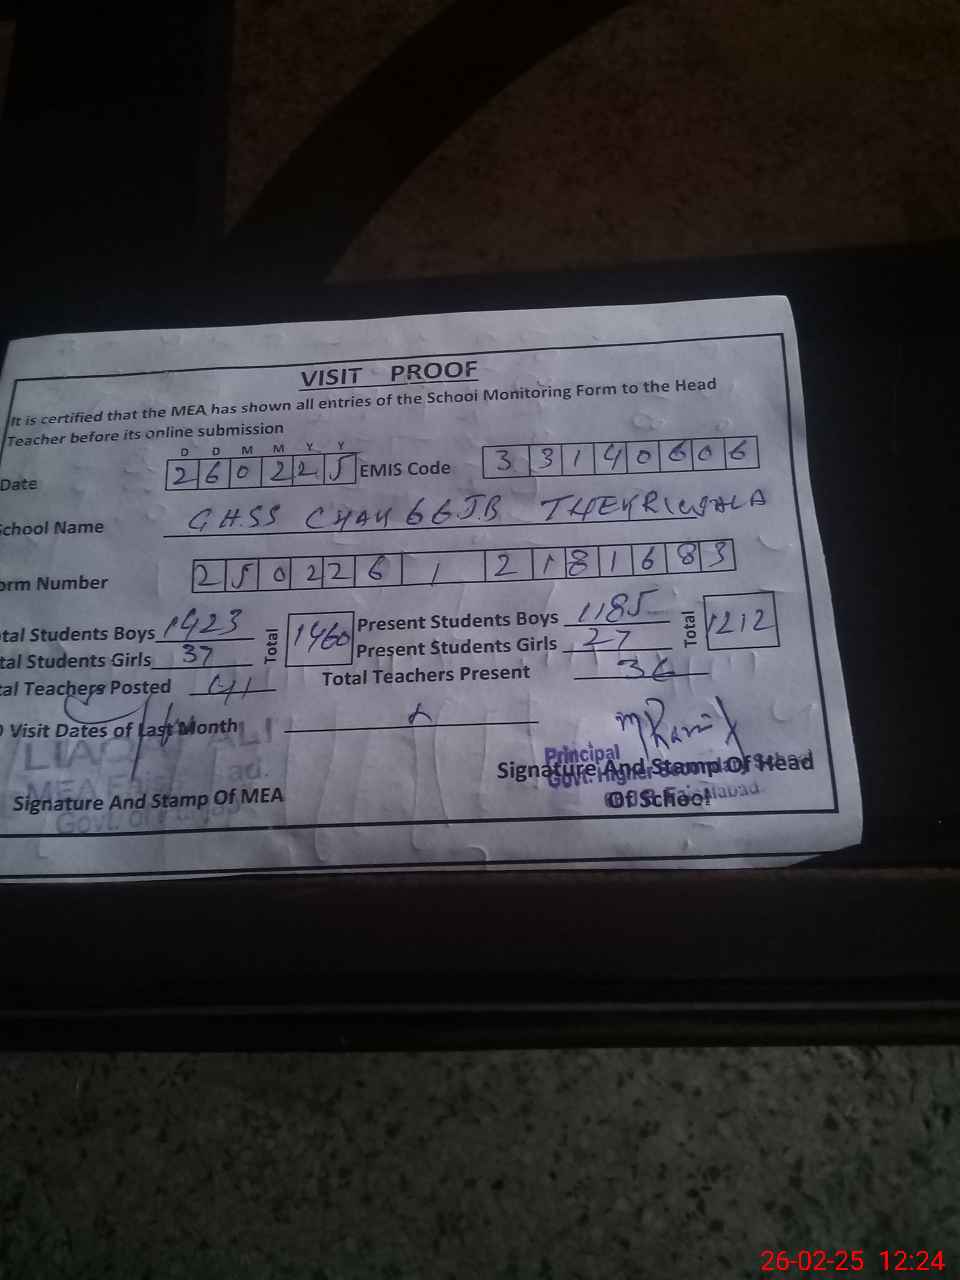 VISIT PROOF
It is certified that the MEA has shown all entries of the School Monitoring Form to the Head
Teacher before its online submission
D D M M Y Y
Date 260225 EMIS Code 33140606
School Name GHSS CHAK 66 J.B THEKRIWALA
orm Number 250226 1 2181683
tal Students Boys 1423 Total 1460 Present Students Boys 1185 Total 1212
tal Students Girls 37 Present Students Girls 27
tal Teachers Posted 41 Total Teachers Present 36
Visit Dates of Last Month
LIAQ ALI
MEA Fais ad.
Govt. of Punjab
Signature And Stamp Of MEA
Principal
Govt. Higher Secondary
Signature And Stamp Of Head
Of School
Faisalabad
26-02-25 12:24